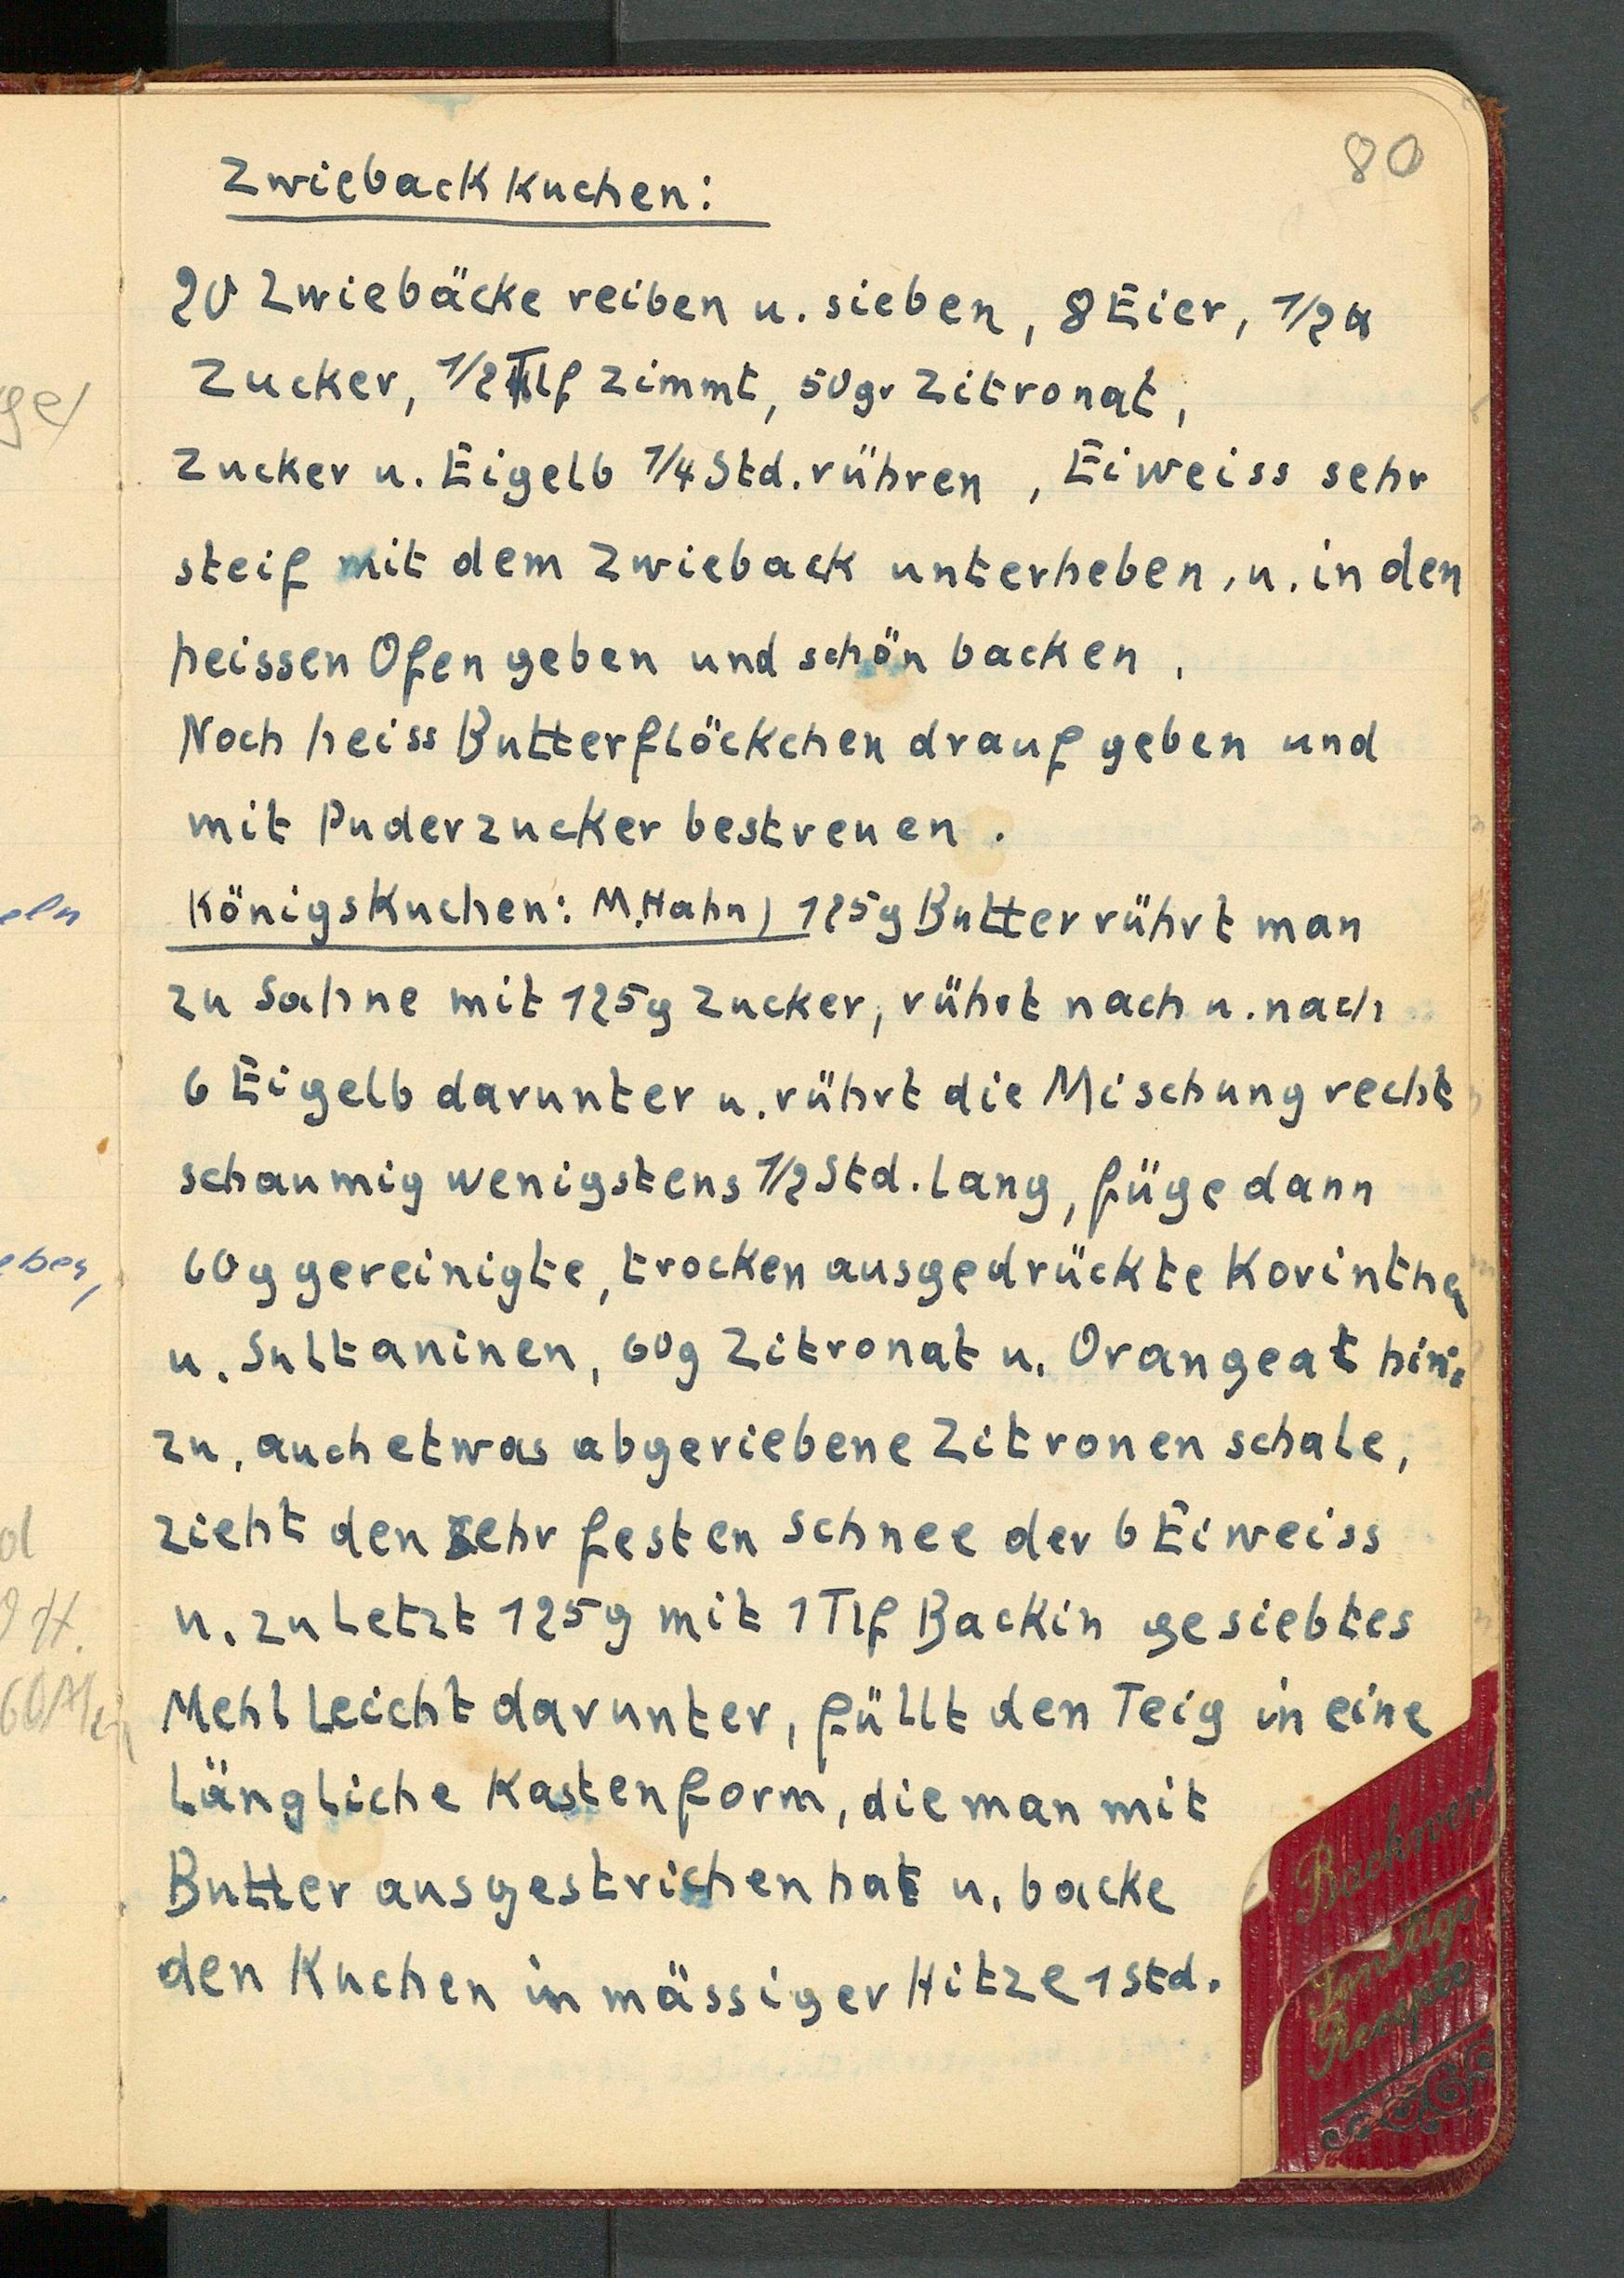 80
Zwiebackkuchen:
20 Zwiebäcke reiben u. sieben, 8 Eier, 1/2 ℔
Zucker, 1/2 Tlf Zimmt, 50gr Zitronat,
Zucker u. Eigelb 1/4 Std. rühren, Eiweiss sehr
steif mit dem Zwieback unterheben, u. in den
heissen Ofen geben und schön backen.
Noch heiss Butterflöckchen drauf geben und
mit Puderzucker bestreuen.
Königskuchen: M. Hahn) 125g Butter rührt man
zu Sahne mit 125g Zucker, rührt nach u. nach
6 Eigelb darunter u. rührt die Mischung recht
schaumig wenigstens 1/2 Std. lang, füge dann
60g gereinigte, trocken ausgedrückte Korinthen
u. Sultaninen, 60g Zitronat u. Orangeat hin=
zu, auch etwas abgeriebene Zitronenschale,
zieht den sehr festen Schnee der 6 Eiweiss
u. zuletzt 125g mit 1 Tlf Backin gesiebtes
Mehl leicht darunter, füllt den Teig in eine
längliche Kastenform, die man mit
Butter ausgestrichen hat u. backe
den Kuchen in mässiger Hitze 1 Std.
Backwerk
Sonstige
Rezepte